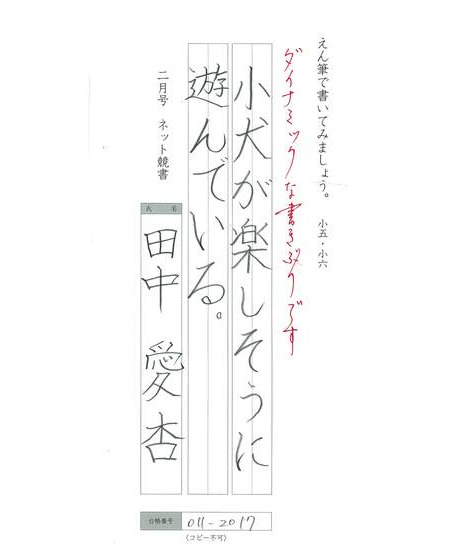 えん筆で書いてみましょう。 小五・小六
ダイナミックな書きぶりです
小犬が楽しそうに
遊んでいる。
二月号 ネット競書
氏名
田中 愛杏
台帳番号 011-2017
(コピー不可)